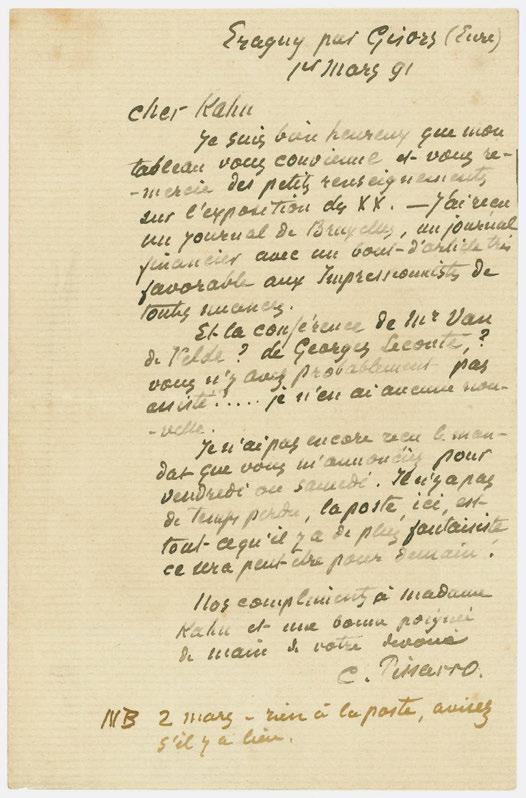 Eragny par Gisors (Eure)
1er Mars 91
cher Kahn
Je suis bien heureux que mon
tableau vous convienne et vous re-
-mercie des petits renseignements
sur l'exposition des XX. — J'ai reçu
un journal de Bruxelles, un journal
financier avec un bout d'article très
favorable aux Impressionnistes de
toutes nuances.
Et la conférence de Mr Van
de Velde ? de Georges Lecomte, ?
vous n'y avez probablement pas
assisté ! .... je n'en ai aucune nou-
-velle.
Je n'ai pas encore reçu le man-
dat que vous m'annonciez pour
vendredi ou samedi. Il n'y a pas
de temps perdu, la poste, ici, est
tout ce qu'il y a de plus fantaisiste
ce sera peut-être pour demain !
Nos compliments à madame
Kahn et une bonne poignée
de main de votre dévoué
C. Pissarro.
NB 2 mars - rien à la poste, avisez
s'il y a lieu.